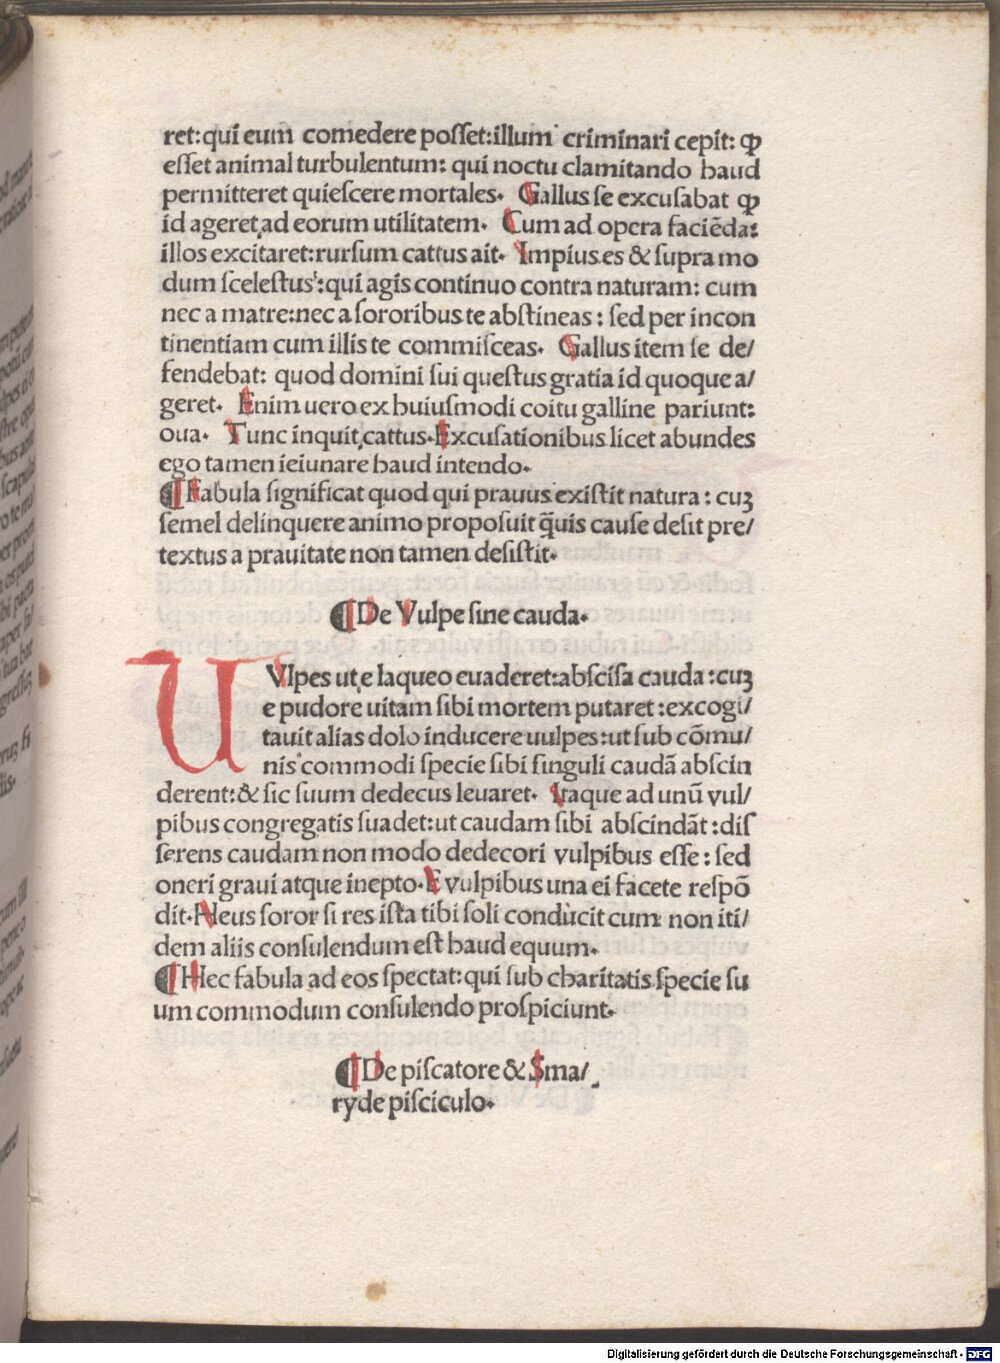 ret:qui eum comedere poſſet:illum criminari cepit: ꝙ
eſſet animal turbulentum: qui noctu clamitando haud
permitteret quieſcere mortales. Gallus ſe excuſabat ꝙ
id ageret,ad eorum utilitatem. Cum ad opera faciēda:
illos excitaret:rurſum cattus ait. Impius es & ſupra mo
dum ſceleſtus:qui agis continuo contra naturam: cum
nec a matre:nec a ſororibus te abſtineas : ſed per incon
tinentiam cum illis te commiſceas. Gallus item ſe de/
fendebat: quod domini ſui queſtus gratia id quoque a/
geret. Enim uero ex huiuſmodi coitu galline pariunt:
oua. Tunc inquit,cattus.Excuſationibus licet abundes
ego tamen ieiunare haud intendo.
¶ Fabula ſignificat quod qui prauus exiſtit natura : cuꝫ
ſemel delinquere animo propoſuit q̄uis cauſe deſit pre/
textus a prauitate non tamen deſiſtit.
¶ De Vulpe ſine cauda.
U Vlpes ut,e laqueo euaderet:abſciſa cauda :cuꝫ
e pudore uitam ſibi mortem putaret :excogi/
tauit alias dolo inducere uulpes:ut ſub cōmu/
nis commodi ſpecie ſibi ſinguli caudā abſcin
derent:& ſic ſuum dedecus leuaret. Itaque ad unū vul/
pibus congregatis ſuadet:ut caudam ſibi abſcindāt :diſ
ſerens caudam non modo dedecori vulpibus eſſe : ſed
oneri graui atque inepto.E vulpibus una ei facete reſpō
dit.Heus ſoror ſi res iſta tibi ſoli conducit cum non iti/
dem aliis conſulendum eſt haud equum.
¶ Hec fabula ad eos ſpectat:qui ſub charitatis ſpecie ſu
um commodum conſulendo proſpiciunt.
¶ De piſcatore & Sma/
ryde piſciculo.
Digitalisierung gefördert durch die Deutsche Forschungsgemeinschaft - DFG